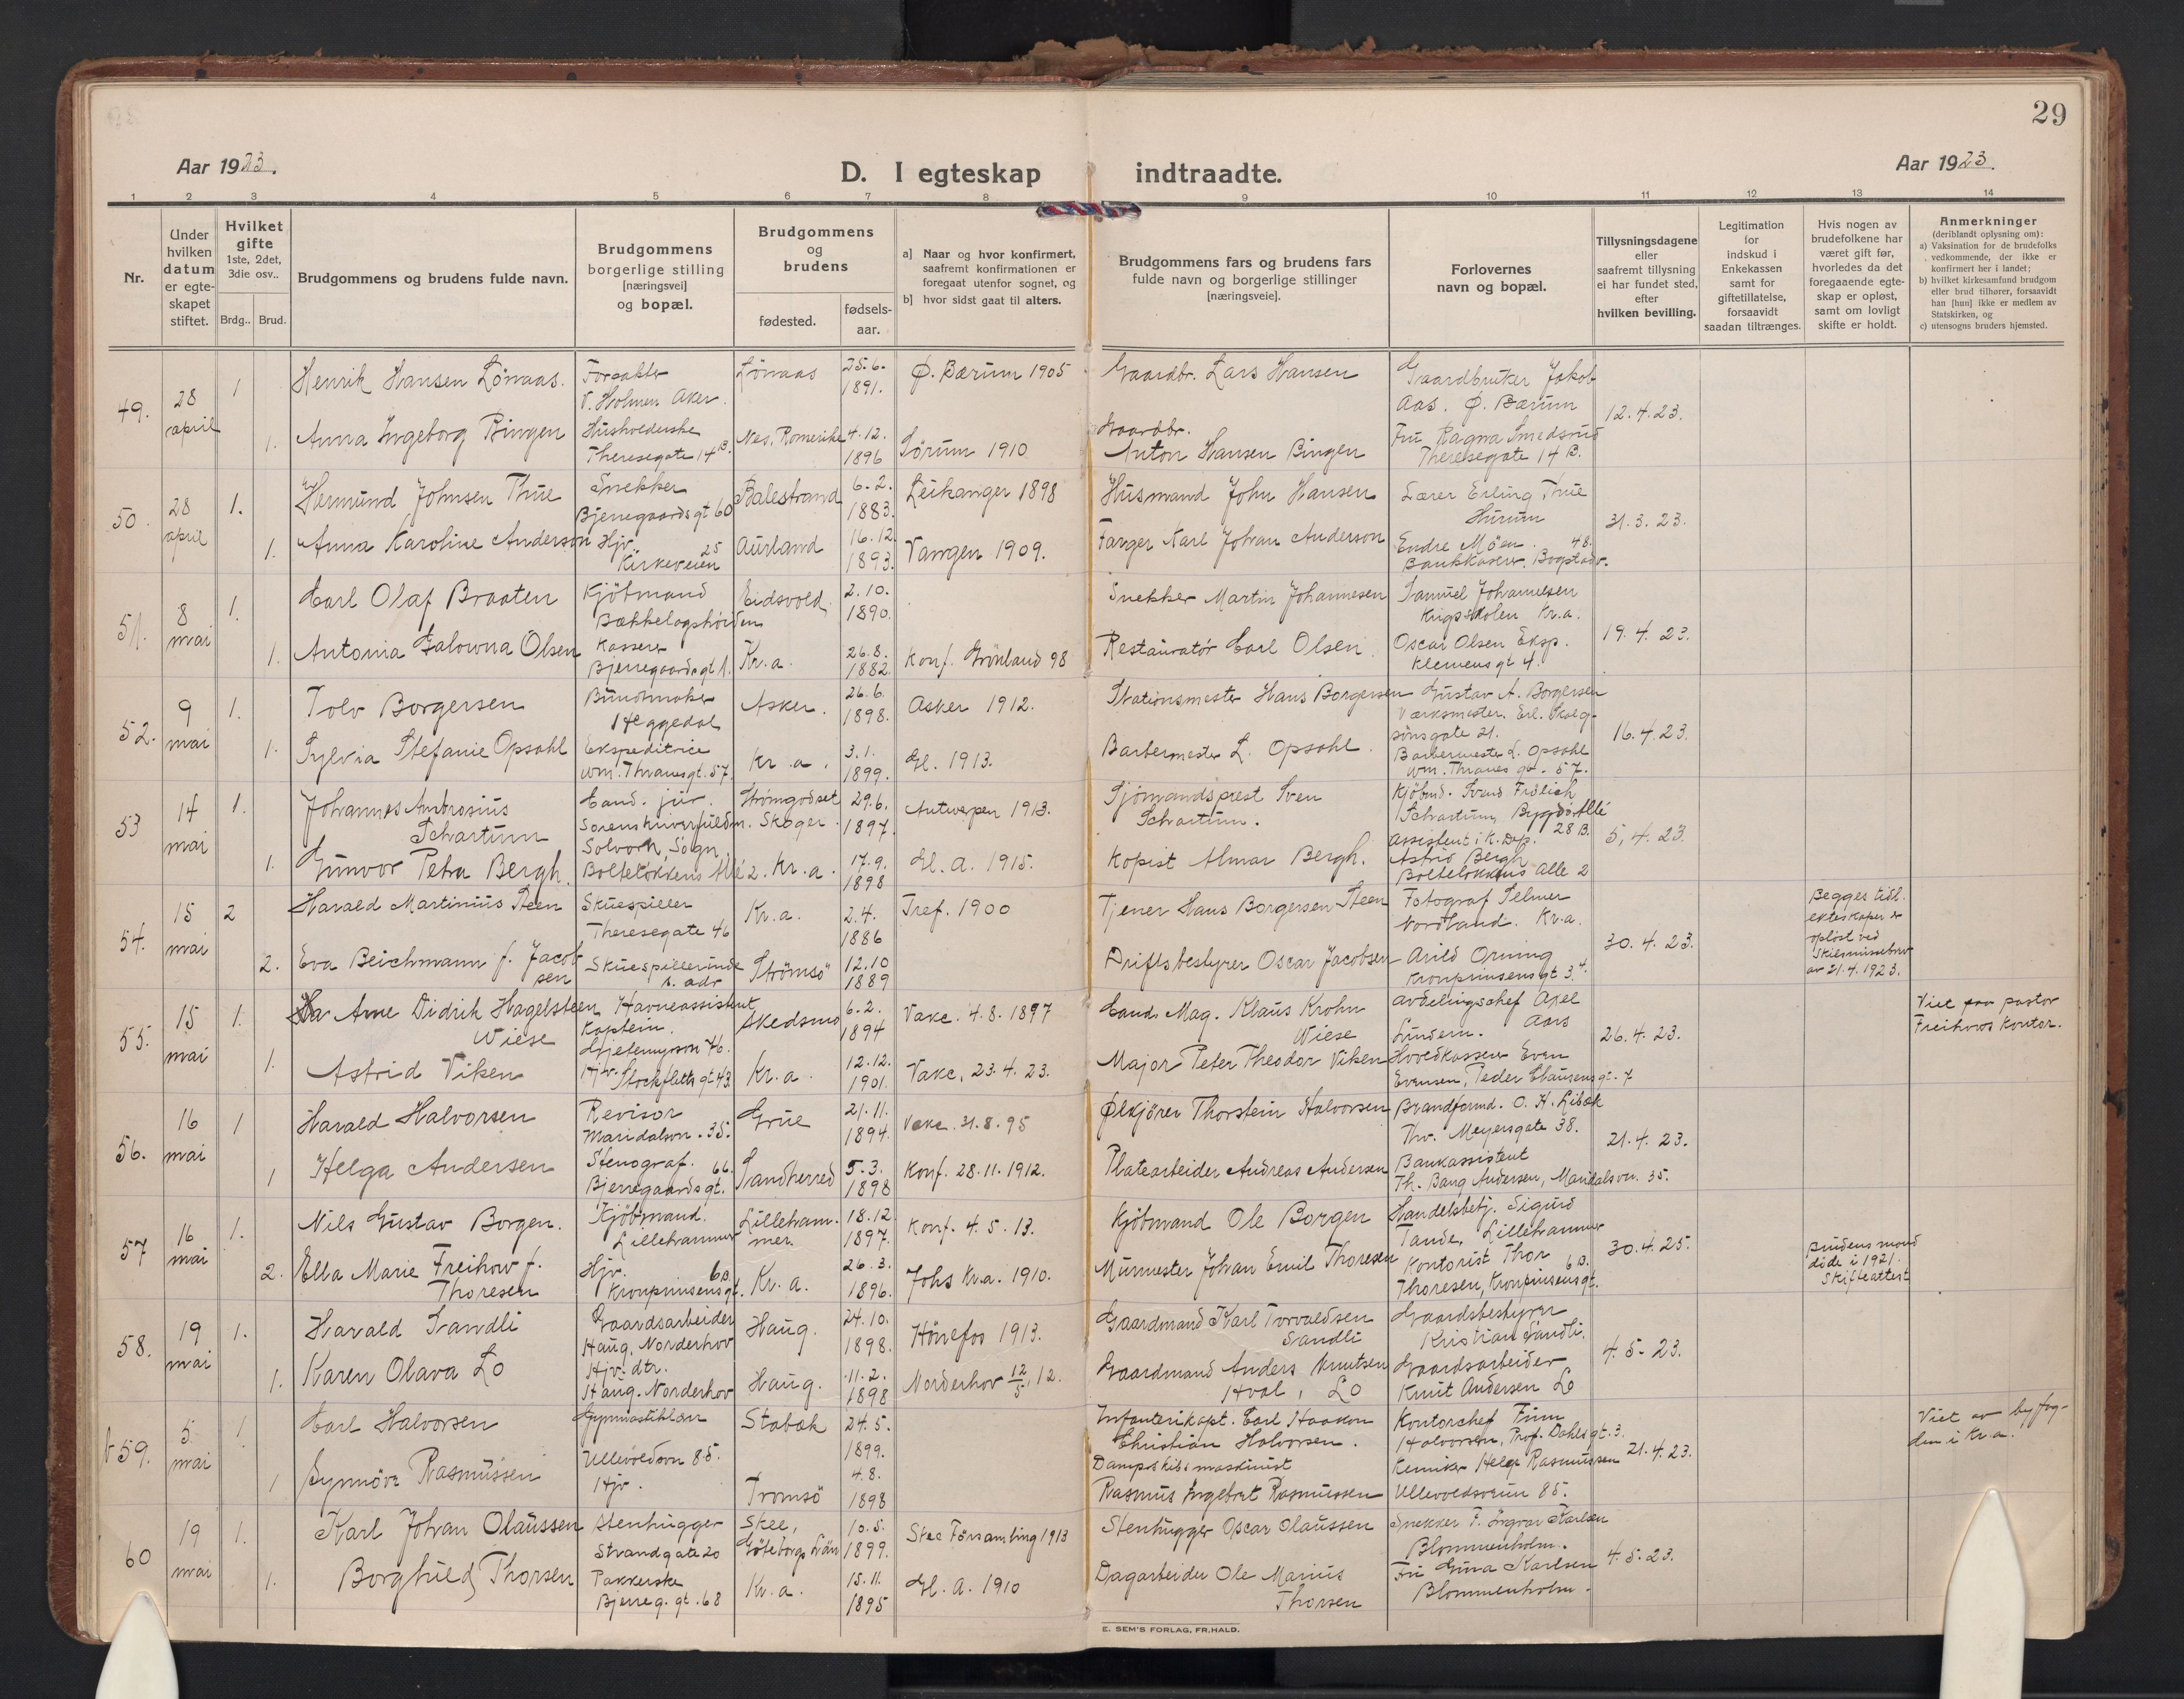 29
Aar 1923.
D. I egteskap indtraadte.
Aar 1923.
1 2 3 4 5 6 7 8 9 10 11 12 13 14
Nr.
Under hvilken datum er egteskapet stiftet.
Hvilket gifte 1ste, 2det, 3die osv..
Brdg.. Brud.
Brudgommens og brudens fulde navn.
Brudgommens borgerlige stilling [næringsvei] og bopæl.
Brudgommens og brudens
fødested.
fødsels-aar.
a] Naar og hvor konfirmert, saafremt konfirmationen er foregaat utenfor sognet, og
b] hvor sidst gaat til alters.
Brudgommens fars og brudens fars fulde navn og borgerlige stillinger [næringsveie].
Forlovernes navn og bopæl.
Tillysningsdagene eller saafremt tillysning ei har fundet sted, efter hvilken bevilling.
Legitimation for indskud i Enkekassen samt for giftetillatelse, forsaavidt saadan tiltrænges.
Hvis nogen av brudefolkene har været gift før, hvorledes da det foregaaende egteskap er opløst, samt om lovligt skifte er holdt.
Anmerkninger (deriblandt oplysning om):
a) Vaksination for de brudefolks vedkommende, der ikke er konfirmert her i landet;
b) hvilket kirkesamfund brudgom eller brud tilhører, forsaavidt han [hun] ikke er medlem av Statskirken, og
c) utensogns bruders hjemsted.
49. 28 april 1 Henrik Hansen Lönaas. Forpakter V. Holmen Aker. Lönaas 25.6. 1891. Ø. Bærum 1905 Gaardbr. Lars Hansen Gaardbruker Jakob Aas. Ø. Bærum 12.4.23.
1. Anna Ingeborg Bingen Husholderske Theresegate 14 B. Nes, Romerike 4.12. 1896 Sörum 1910 Gaardbr. Anton Hansen Bingen Fru Ragna Smedsrud Theresegate 14 B.
50. 28 april 1. Hermund Johnsen Thue Snekker Bjerregaards gt 60 Balestrand 6.2. 1883. Leikanger 1898 Husmand John Hansen Lærer Erling Thue Hurum 31.3.23.
1. Anna Karoline Anderson Hjv. Kirkeveien 25 Aurland 16.12. 1893. Vangen 1909. Farger Karl Johan Anderson Endre Möen. Bankkasserer. Bogstadv. 48.
51. 8 mai 1. Carl Olaf Braaten Kjöbmand Bækkelagshöiden Eidsvold 2.10. 1890. Snekker Martin Johannesen Samuel Johannesen Krigsskolen Kr.a. 19.4.23.
1. Antonia Galowna Olsen Kasserer Bjerregaards gt 1. Kr.a. 26.8. 1882. Konf. Grönland 98 Restauratör Carl Olsen Oscar Olsen Eksp. Klemensgt 4.
52. 9 mai 1. Tolv Borgersen Buntmaker Heggedal Asker. 26.6. 1898. Asker 1912. Stationsmester Hans Borgersen Gustav A. Borgersen Værksmester. Erl. Skalgsönsgate 21. 16.4.23.
1. Sylvia Stefanie Opsahl Ekspeditrice Wm. Thranesgt. 57. Kr.a. 3.1. 1899. Gl. 1913. Barbermester L. Opsahl. Barbermester L. Opsahl Wm. Thranes gt. 57.
53 14 mai 1. Johannes Ambrosius Schartum Cand. jur. Sorenskriverfuldm. Solvorn, Sogn Strömgodset Skoger 29.6. 1897. Antwerpen 1913. Sjömandsprest Sven Schartum. Kjöbmd. Svend Frölich Schartum, Bygdö Allé 28 B. 5.4.23.
1. Gunvor Petra Bergh. Bolteløkkens Allé 2. Kr.a. 17.9. 1898 Gl. A. 1915. Kopist Almar Bergh. Assistent i K. Dep. Astrid Bergh Bolteløkkens Alle 2
54. 15 mai 2 Harald Martinius Steen Skuespiller Theresegate 46 Kr.a. 2.4. 1886 Tref. 1900 Tjener Hans Borgersen Steen Fotograf Selmer Nordland. Kr.a. 30.4.23. Begges tidl. ekteskaper er opløst ved Skilsmissebevr av 21.4.1923.
2. Eva Beichmann f. Jacobsen Skuespillerinde s. adr Strömsö 12.10 1889 Driftsbestyrer Oscar Jacobsen Arild Orning Kronprinsensgt 3.
55. 15 mai 1. Arne Didrik Hagelsteen Wiese Havneassistent Kaptein. Gjetemyrsvn 46. Skedsmo 6.2. 1894 Vakc. 4.8.1897 Cand. Mag. Klaus Krohn Wiese Avdelingschef Axel Aars Lindern. 26.4.23. Viet paa pastor Freihows kontor.
1. Astrid Viken Hjv. Stockfleths gt 43 Kr.a. 12.12. 1901. Vakc. 23.4.23. Major Peter Theodor Viken Hovedkasserer Even Evensen, Peder Clausens gt. 7
56. 16 mai 1 Harald Halvorsen Revisor Maridalsvn. 35. Grue 21.11. 1894. Vakc. 31.8.95 Ølkjörer Thorstein Halvorsen Brandformd. O. H. Libæk Thv. Meyersgate 38. 21.4.23.
1 Helga Andersen Stenograf. Bjerregaards gt. 66. Sandherred 5.3. 1898 Konf. 28.11.1912. Platearbeider Andreas Andersen Bankassistent Th. Bang Andersen, Maridalsvn. 35.
57 16 mai 1. Nils Gustav Borgen. Kjöbmand. Lillehammer Lillehammer. 18.12. 1897. Konf. 4.5.13. Kjöbmand Ole Borgen Handelsbetj. Sigurd Tande, Lillehammer 30.4.25.
2. Ella Marie Freihow f. Thoresen Hjv. Kronprinsensgt. 6 B. Kr.a. 26.3. 1896. Johs Kr.a. 1910. Murmester Johan Emil Thoresen Kontorist Thor Thoresen, Kronprinsensgt. 6 B. Brudens mand döde i 1921. Skifteattest
58. 19 mai 1. Harald Sandli Gaardsarbeider Haug, Norderhov Haug. 24.10. 1898. Hönefos 1913. Gaardmand Karl Torvaldsen Sandli Gaardsbestyrer Kristian Sandli. 4.5-23.
1. Karen Olava Lo Hjv. dtr. Haug. Norderhov Haug. 11.2. 1898 Norderhov 12/5.12. Gaardmand Anders Knutsen Hval, Lo Gaardsarbeider Knut Andersen Lo
b 59. 5 mai 1. Carl Halvorsen Gymnastiklærer Ullevoldsvn 85. Stabæk 24.5. 1899. Infanterikapt. Carl Haakon Christian Halvorsen. Kontorchef Finn Halvorsen, Prof. Dahls gt. 3. 21.4.23. Viet av byfogden i Kr.a.
1 Synnöve Rasmussen Hjv. Tromsö 4.8. 1898 Dampskibsmaskinist Rasmus Ingebret Rasmussen Kemiker Helge Rasmussen Ullevoldsveien 85.
60 19 mai 1. Karl Johan Olaussen Stenhugger Strandgate 20 Skee, Göteborgs Län 10.5. 1899. Skee Församling 1913 Stenhugger Oscar Olaussen Snekker F. Ingvar Karlsen Blommenholm. 4.5.23.
1. Borghild Thorsen Pakkerske Bjerreg. gt. 68 Kr.a. 15.11. 1895 Gl. A. 1910 Dagarbeider Ole Marius Thorsen Fru Guna Karlsen Blommenholm.
E. SEM'S FORLAG, FR.HALD.